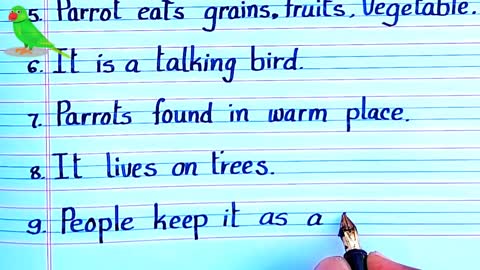 5. Parrot eats grains, fruits, vegetable.
6. It is a talking bird.
7. Parrots found in warm place.
8. It lives on trees.
9. People keep it as a